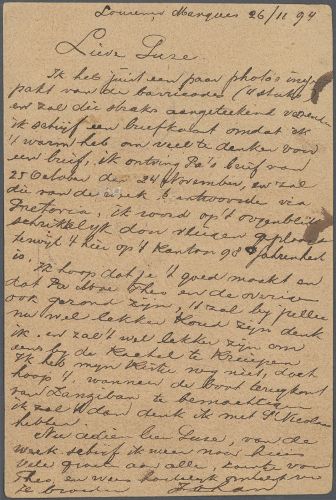 Lourenco Marques 26/11 94
Lieve Suze.
Ik heb juist een paar photo's inge-
pakt van de barricaden (4 stuks)
en zal die straks aangeteekend verzenden
ik schrijf een briefkaart omdat ik
't warm heb om veel te denken voor
een brief, ik ontving Pa's brief van
25 October den 24 November, en zal
die van de week beantwoorden via
Pretoria, ik word op 't oogenblik
schrikkelijk door vliegen geplaagd
terwijl 't hier op 't Kantoor 98 Fahrenheit
is.
Ik hoop dat je 't goed maakt en
dat Pa Moe Theo en de overige
ook gezond zijn, 't zal bij jullie
nu wel lekker koud zijn denk
ik en zal 't wel lekker zijn om
eens bij de Kachel te kruipen
Ik heb mijn Kist nog niet, doch
hoop 't, wanneer de boot terugkomt
van Zanzibar te bemachtigen
ik zal 't dan denk ik met St Nicolaas
hebben.
Nu adieu lieve Suze, van de
week schrijf ik weer naar huis
vele groeten aan alle, zoentje voor
Theo, en wees hartelijk omhelsd van
je broeder